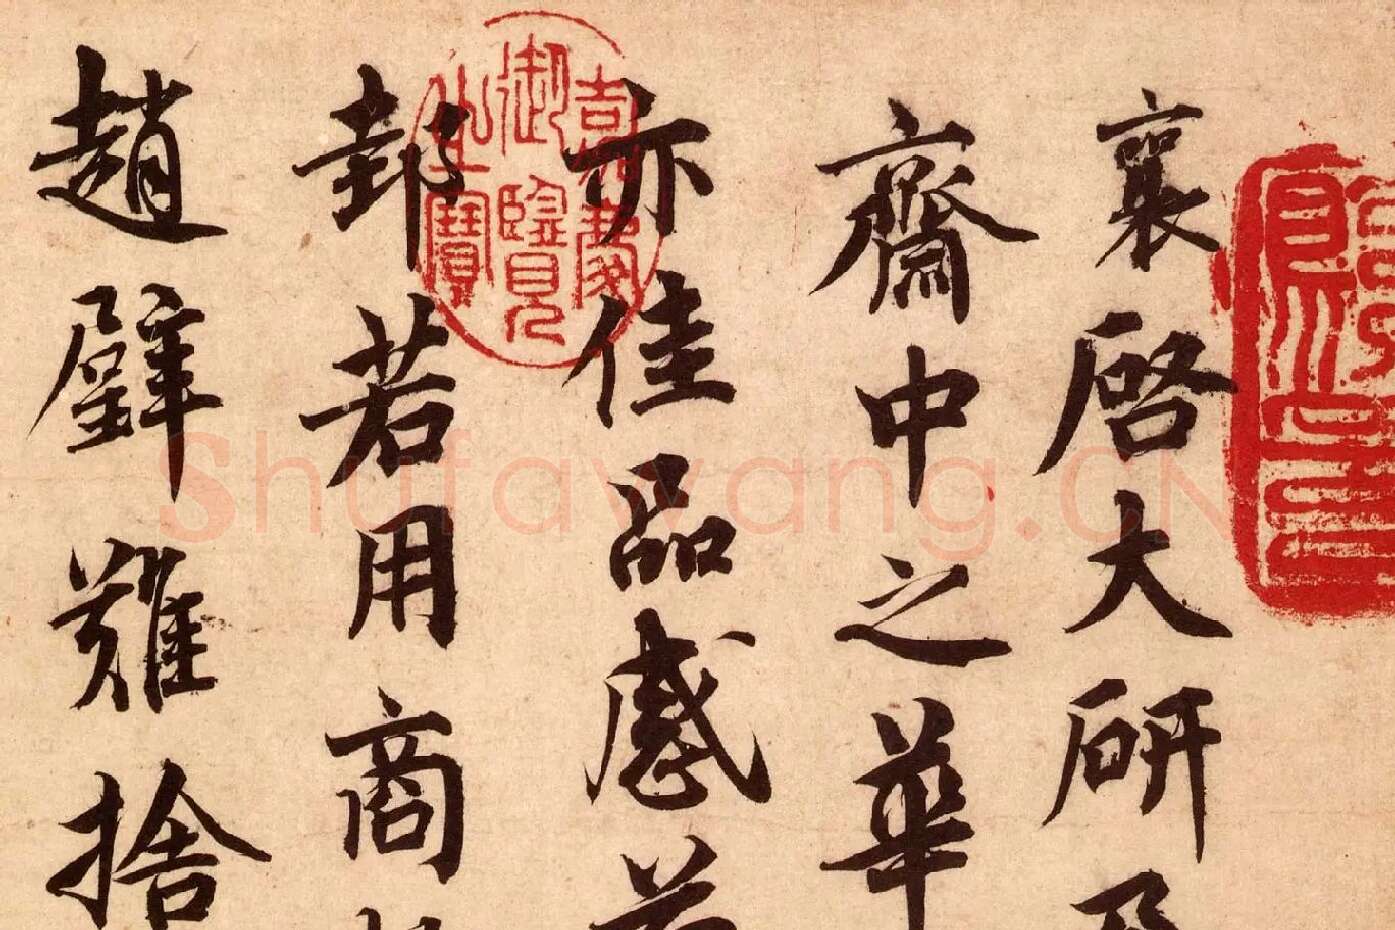 襄啓大研
齋中之華
亦佳品感
邽若用商
趙璧難捨
嘉慶御覽之寶
Shufawang.CN